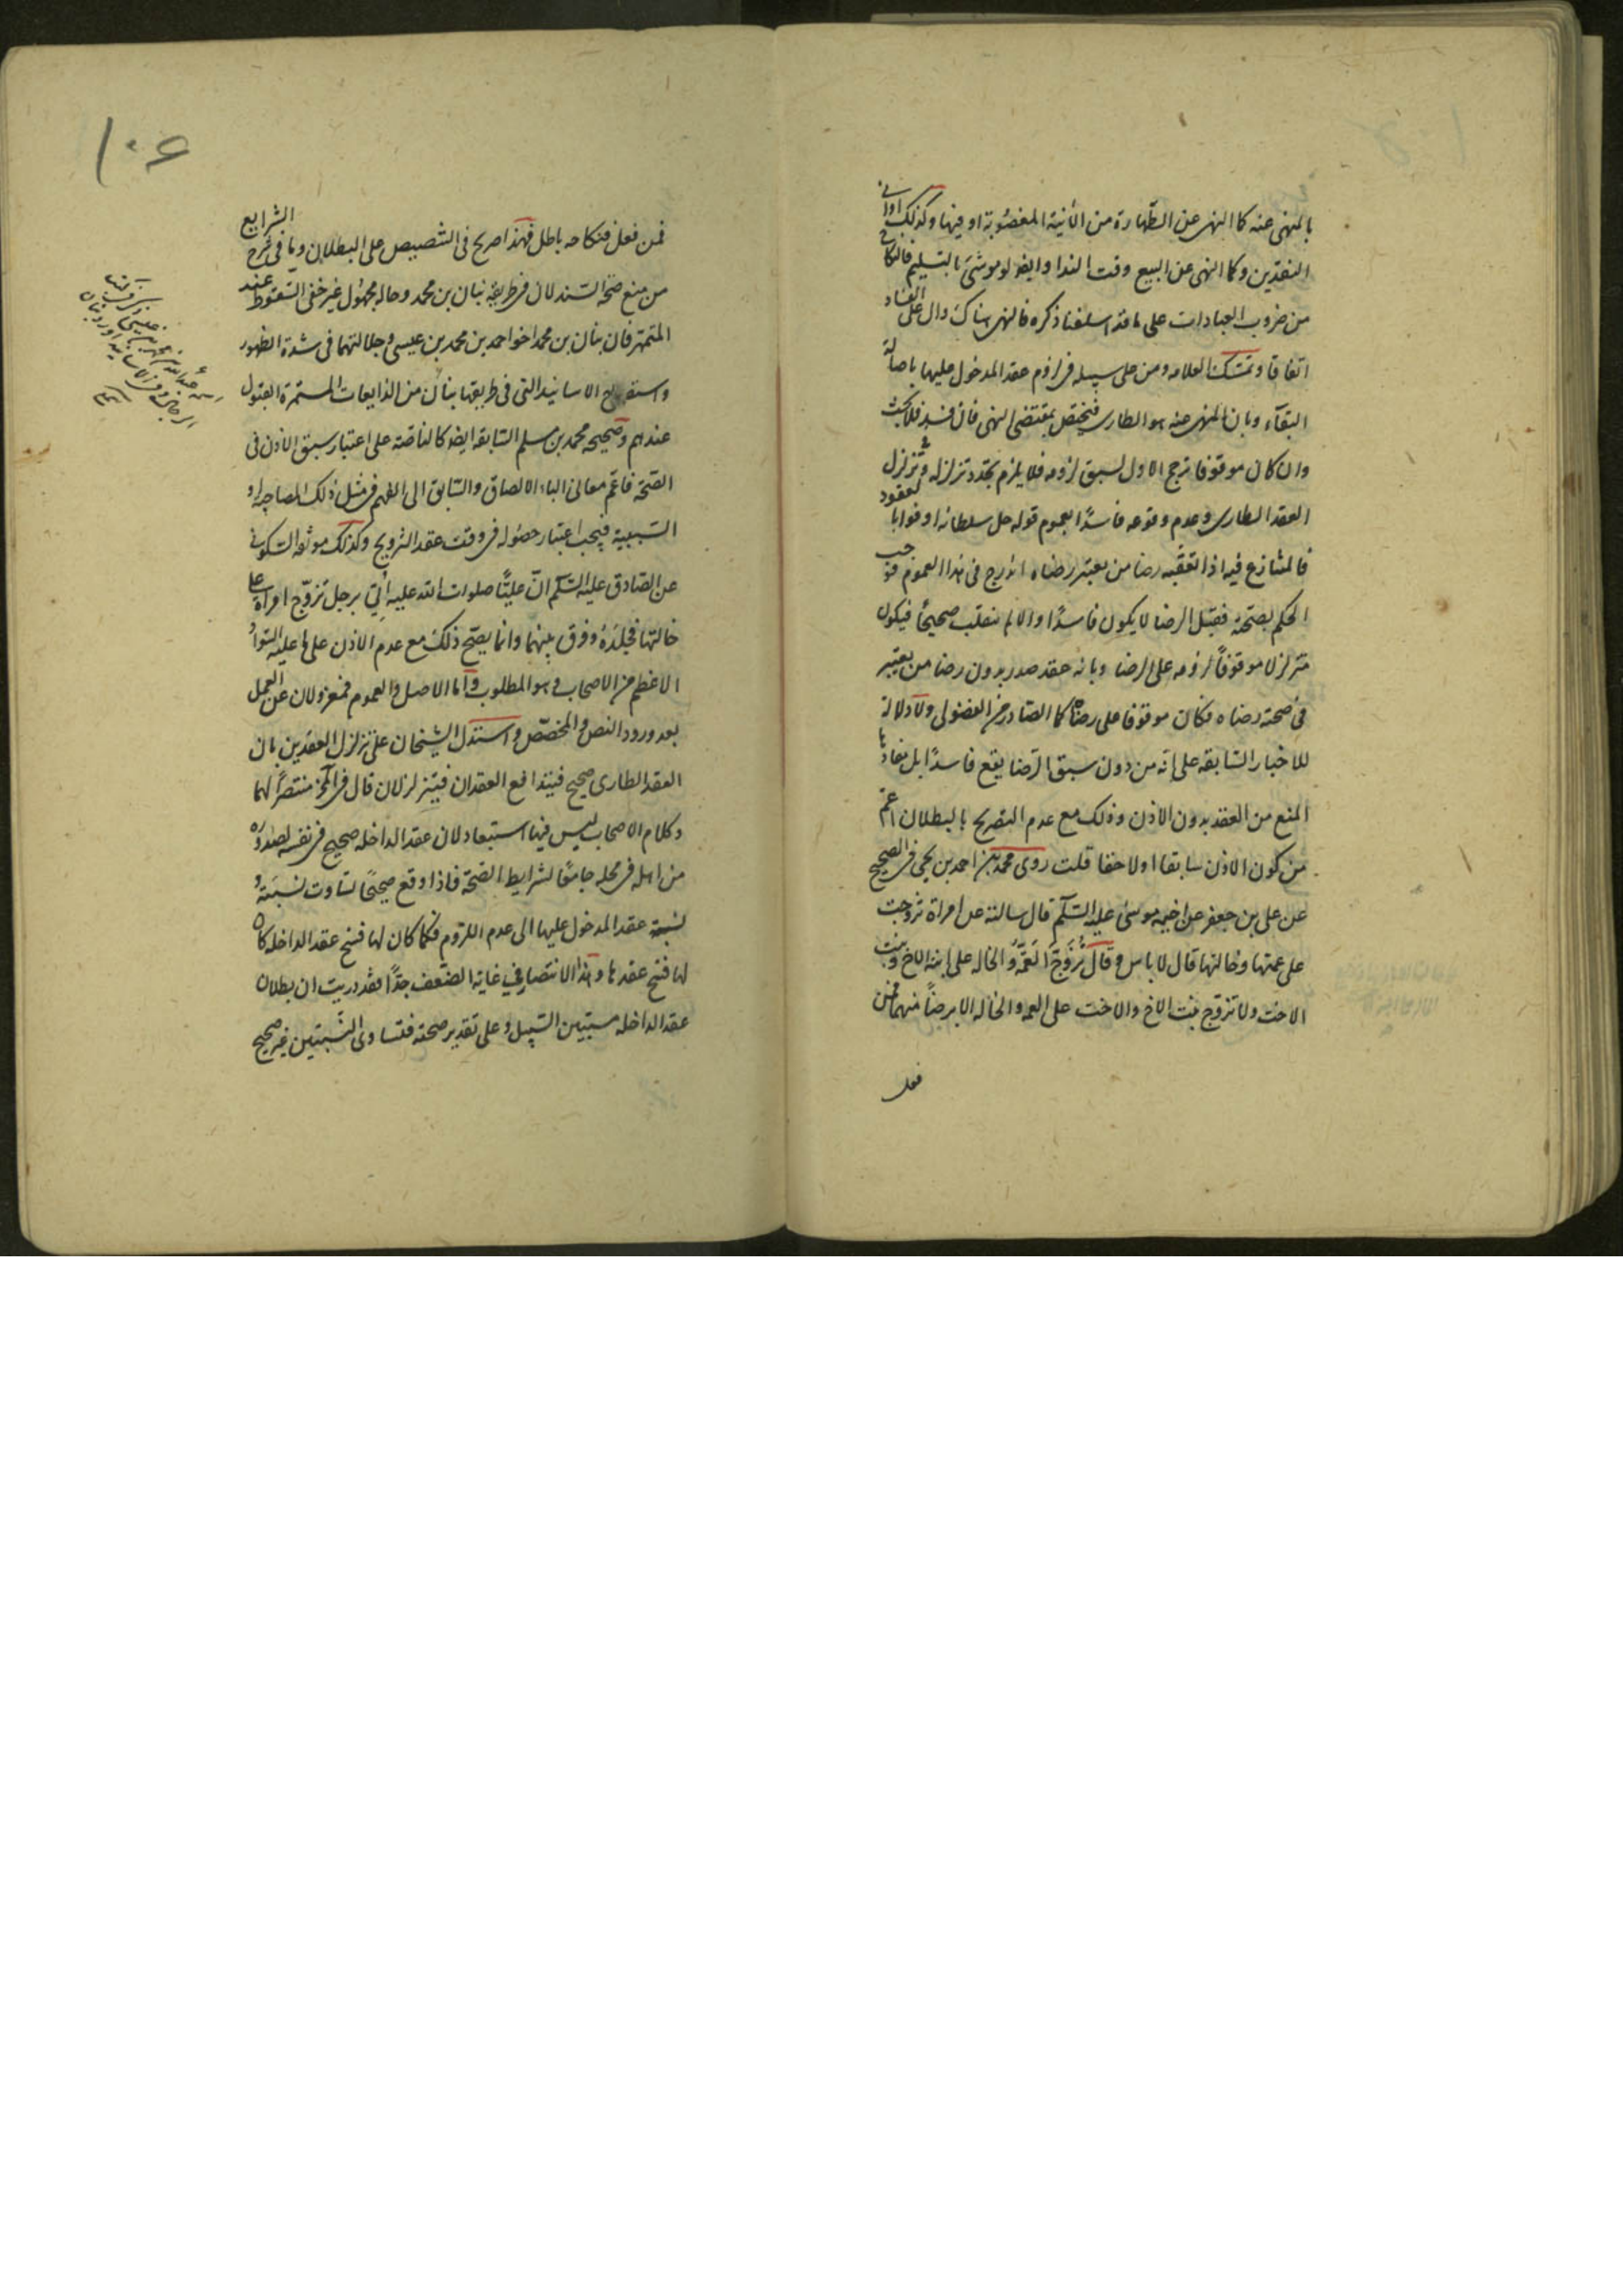 بالمنهى عنه كالنهى عن الطهارة من الانية المغصوبة او فيها وكذلك اوانى
النقدين وكالنهى عن البيع وقت الندا وايضا لو موشى بالتسليم فالنكاح
من ضروب العبادات على ما قد اسلفنا ذكره فالنهى هناك دال على الفساد
اتفاقا وتمسك العلامه ومن على سبيله فى لزوم عقد المدخول عليها باصالة
البقآء وبان المنهى عنه هو الطارى فيختص بمقتضى النهى فان فسد فلا بحث
وان كان موقوفا ترجح الاول لسبق لزومه فلا يلزم تجدد تزلزله وتزلزل
العقد الطارى وعدم وقوعه فاسدًا بعموم قوله جل سلطانه اوفوا بالعقود
فالمتنازع فيه اذا تعقبه رضا من يعتبر رضاه اندرج فى هذا العموم فوجب
الحكم بصحته فقبل الرضا لا يكون فاسدًا والا لم ينقلب صحيحًا فيكون
متزلزلا موقوفًا لزومه على الرضا وبانه عقد صدر بدون رضا من يعتبر
فى صحته رضاه فكان موقوفا على رضاه كالصادر من الفضولى ولا دلالة
للاخبار السابقه على انه من دون سبق الرضا يقع فاسدًا بل مفادها
المنع من العقد بدون الاذن وذلك مع عدم التصريح بالبطلان اعم
من كون الاذن سابقا او لاحقا قلت روى محمد بن احمد بن يحيى فى الصحيح
عن على بن جعفر عن اخيه موسى عليه السلم قال سالته عن امراة تزوجت
على عمتها وخالتها قال لا باس وقال تُزَوَّج العَمَّة والخاله على ابنة الاخ وبنت
الاخت ولا تزوج بنت الاخ والاخت على العمه والخاله الا برضاً منهما فمن
فعل
١٠٤
فمن فعل فنكاحه باطل فهذا صريح فى التنصيص على البطلان وما فى شرح الشرايع
من منع صحة السند لان فى طريقه بنان بن محمد وحاله مجهول غير خفى السقوط عند
المتمهر فان بنان بن محمد اخو احمد بن محمد بن عيسى وجلالتهما فى شدة الظهور
واستصحاح الاسانيد التى فى طريقها بنان من الذايعات المستمرة القبول
عندهم وصحيحه محمد بن مسلم السابقه ايضا كالناصّه على اعتبار سبق الاذن فى
الصحة فاعم معانى الباء الالصاق والسابق الى الفهم فى مثل ذلك المصاحبه او
السببية فيجب اعتبار حصوله فى وقت عقد التزويج وكذلك موثقه السكونى
عن الصادق عليه السلم انّ عليًّا صلوات الله عليه اُتى برجل تزوّج امراة على
خالتها فجلده وفرق بينهما وانما يصح ذلك مع عدم الاذن على ما عليه السواد
الاعظم من الاصحاب وهو المطلوب واما الاصل والعموم فمعزولان عن العمل
بعد ورود النص والمخصّص واستدل الشيخان على تزلزل العقدين بان
العقد الطارى صحيح فيتدافع العقدان فيتزلزلان قال فى منتصرًا لهما
وكلام الاصحاب ليس فيها استبعاد لان عقد الداخله صحيح فى نفسه لصدوره
من اهله فى محله جامعًا لشرايط الصحة فاذا وقع صحيحًا تساوت نسبته و
نسبة عقد المدخول عليها الى عدم اللزوم فكما كان لها فسخ عقد الداخله كان
لها فسخ عقدها وهذا الانتصار فى غاية الضعف جدًّا فقد دريت ان بطلان
عقد الداخله مستبين السبيل وعلى تقدير صحته فتساوى النسبتين غير صحيح